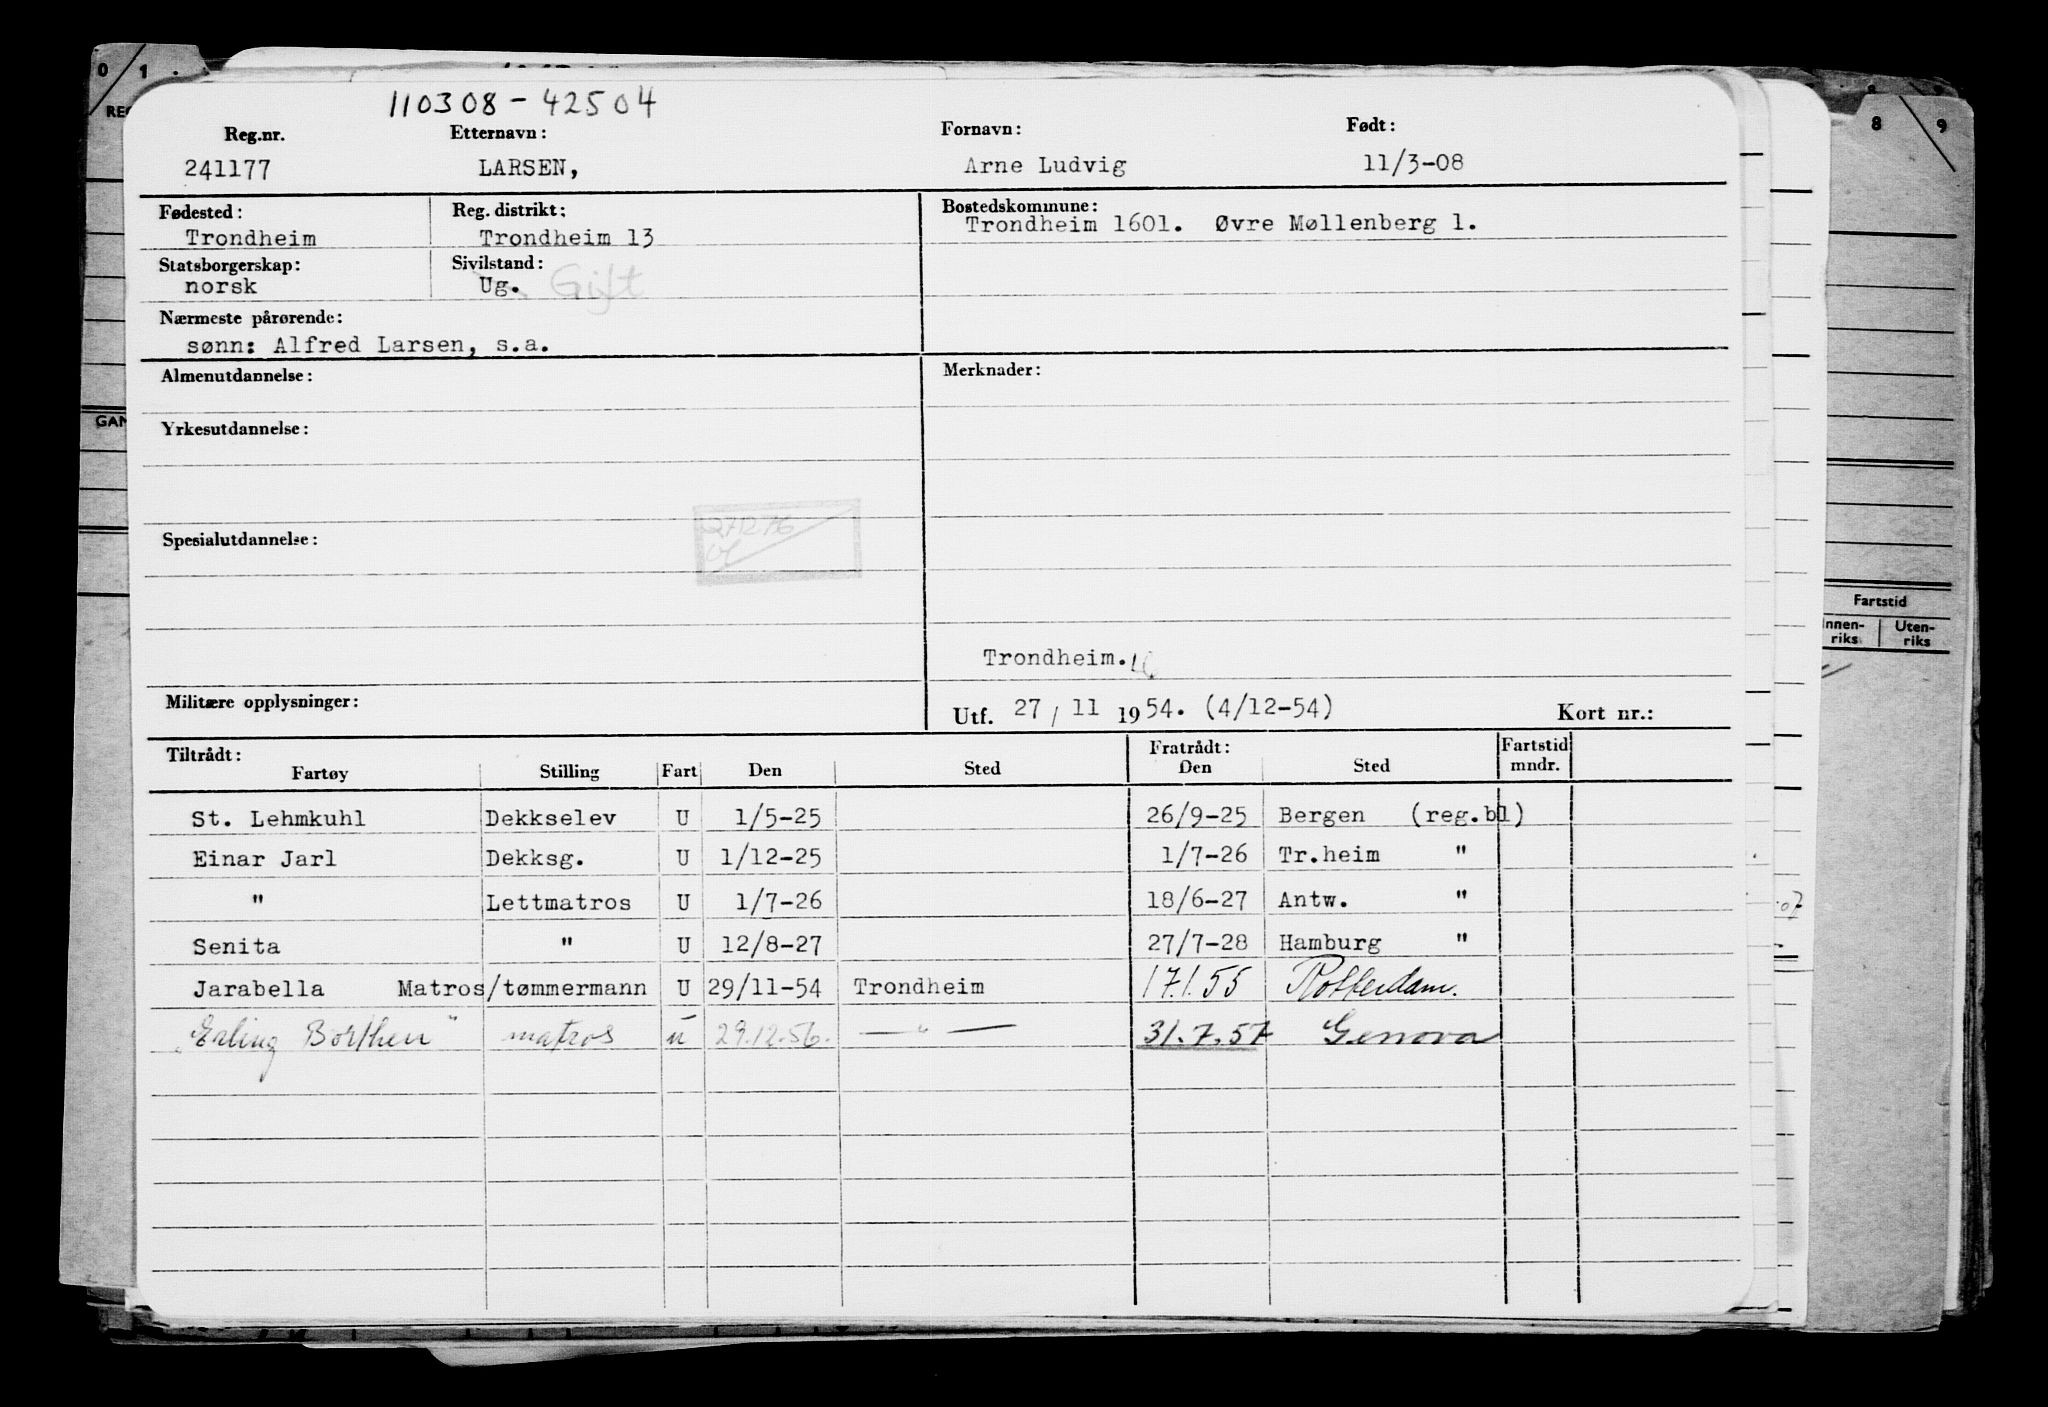 110308-42504
Reg.nr. Etternavn: Fornavn: Født:
241177 LARSEN, Arne Ludvig 11/3-08
Fødested: Reg. distrikt: Bostedskommune:
Trondheim Trondheim 13 Trondheim 1601. Øvre Møllenberg 1.
Statsborgerskap: Sivilstand:
norsk Ug. Gift
Nærmeste pårørende:
sønn: Alfred Larsen, s.a.
Almenutdannelse: Merknader:
Yrkesutdannelse:
271276
Spesialutdannelse:
Trondheim.
Militære opplysninger: Utf. 27/11 1954. (4/12-54) Kort nr.:
Tiltrådt: Fratrådt: Fartstid
Fartøy Stilling Fart Den Sted Den Sted mndr.
St. Lehmkuhl Dekkselev U 1/5-25 26/9-25 Bergen (reg.bl)
Einar Jarl Dekksg. U 1/12-25 1/7-26 Tr.heim "
" Lettmatros U 1/7-26 18/6-27 Antw. "
Senita " U 12/8-27 27/7-28 Hamburg "
Jarabella Matros/tømmermann U 29/11-54 Trondheim 17.1.55 Rotterdam.
"Erling Borthen" matros u 29.12.56. —"— 31.7.57 Genova
0 1
8 9
Fartstid
Innen-riks Uten-riks